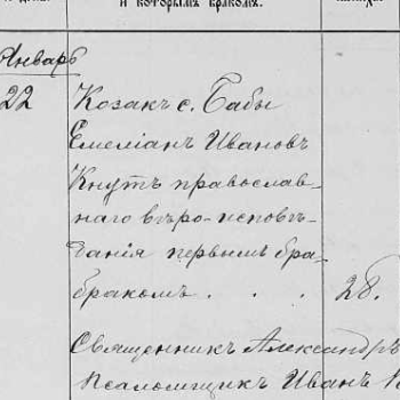 и которымъ бракомъ.
Январь
22 Козакъ с. Бабы
Емеліанъ Ивановъ
Кнутъ православ-
наго вѣро-исповѣ-
данія первымъ бра-
бракомъ . . . 28.
Священникъ Александръ
Псаломщикъ Иванъ